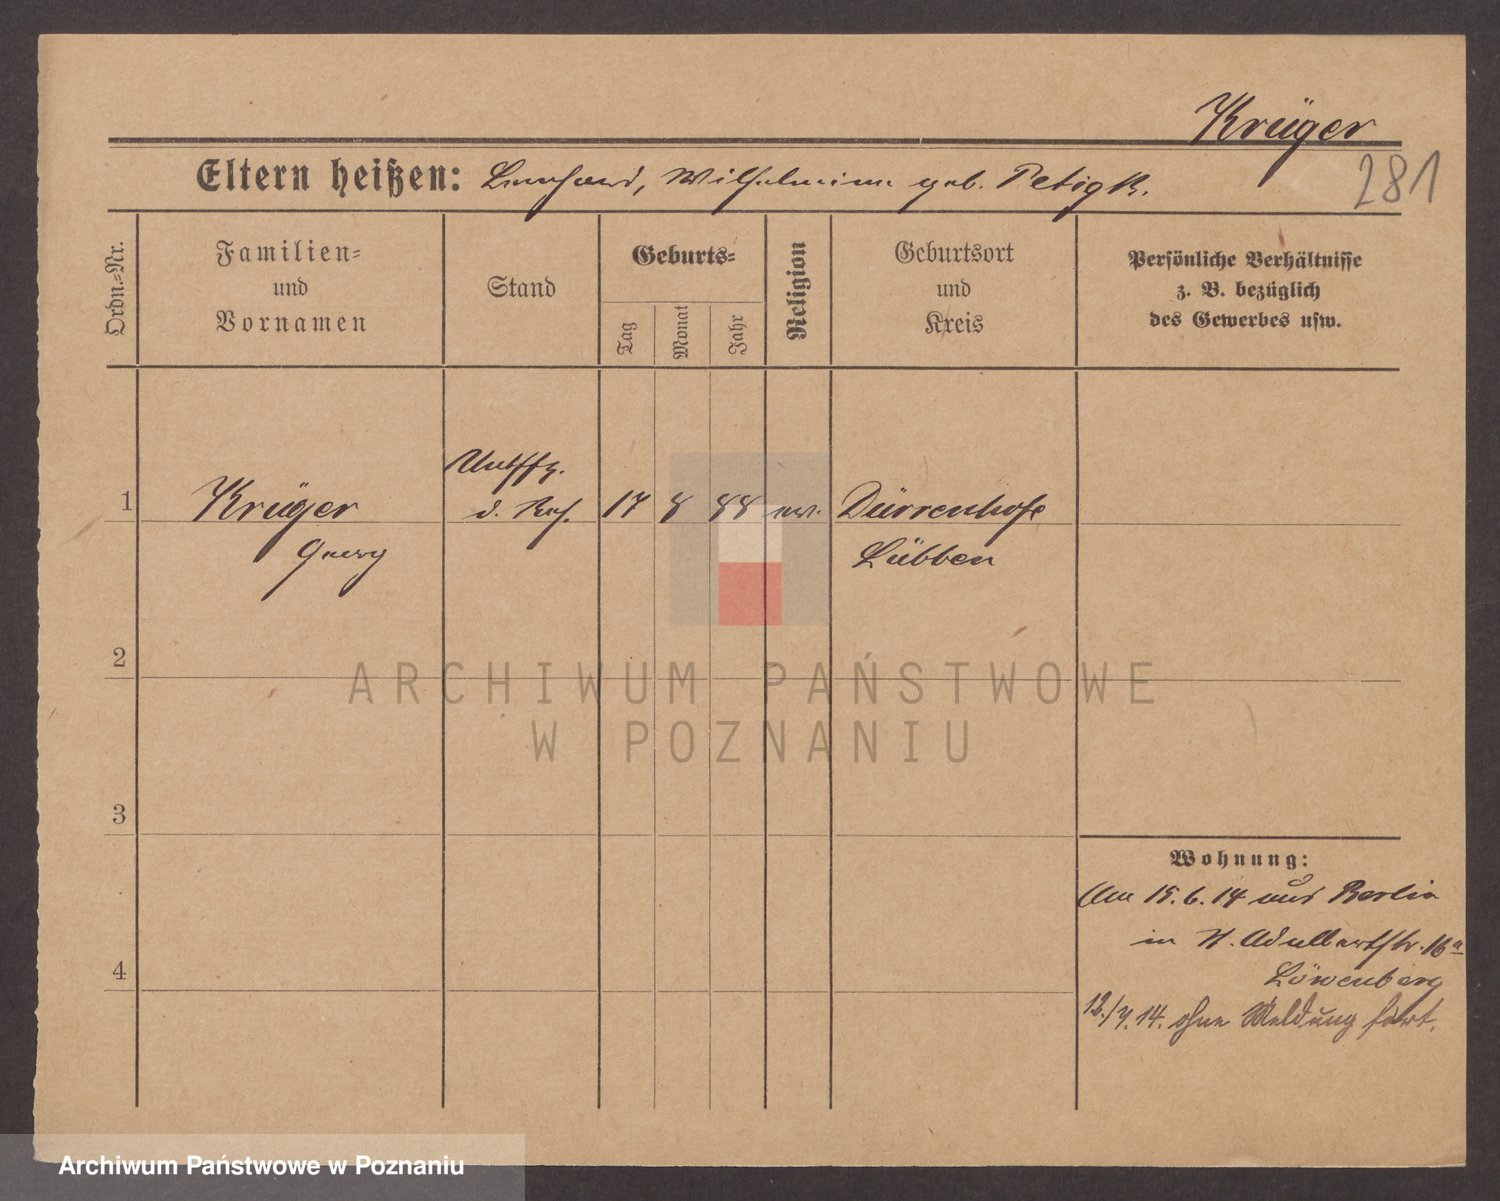 Krüger
281
Eltern heißen: Bernhard, Wilhelmine geb. Petigk.
Ordn.=Nr.
Familien=
und
Vornamen
Stand
Geburts=
Tag
Monat
Jahr
Religion
Geburtsort
und
Kreis
Persönliche Verhältnisse
z. B. bezüglich
des Gewerbes usw.
1
Krüger
Georg
Untffz.
d. Res.
17
8
88
ev.
Dürrenhofe
Lübben
2
3
4
Wohnung:
Am 15.6.14 aus Berlin
in N. Adalbertstr. 16a
Löwenberg
18./7.14. ohne Meldung fort.
ARCHIWUM PAŃSTWOWE
W POZNANIU
Archiwum Państwowe w Poznaniu